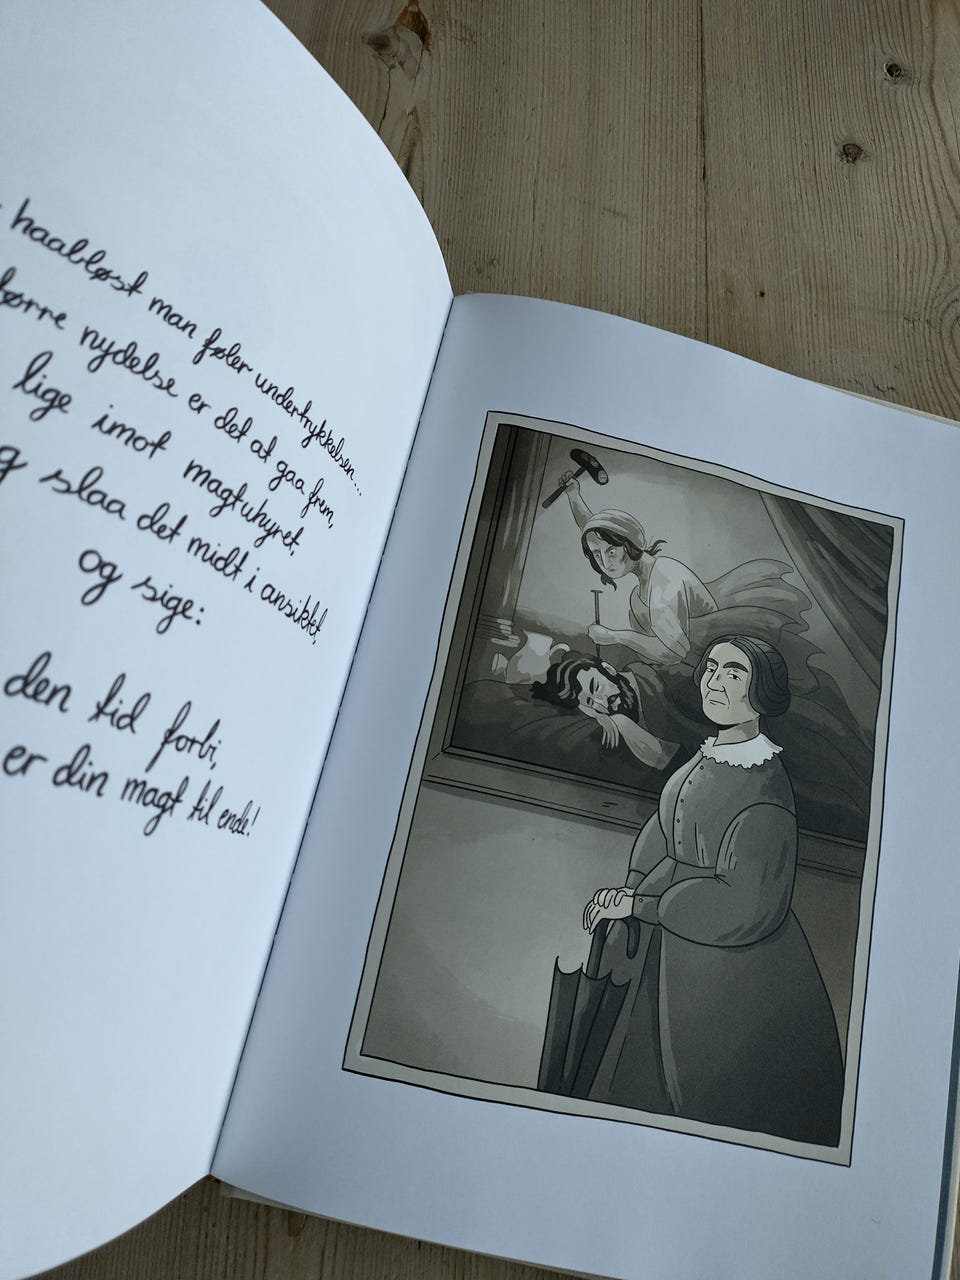 haabløst man føler undertrykkelsen...
større nydelse er det at gaa frem,
lige imot magtuhyret,
og slaa det midt i ansiktet,
og sige:
den tid forbi,
er din magt til ende!